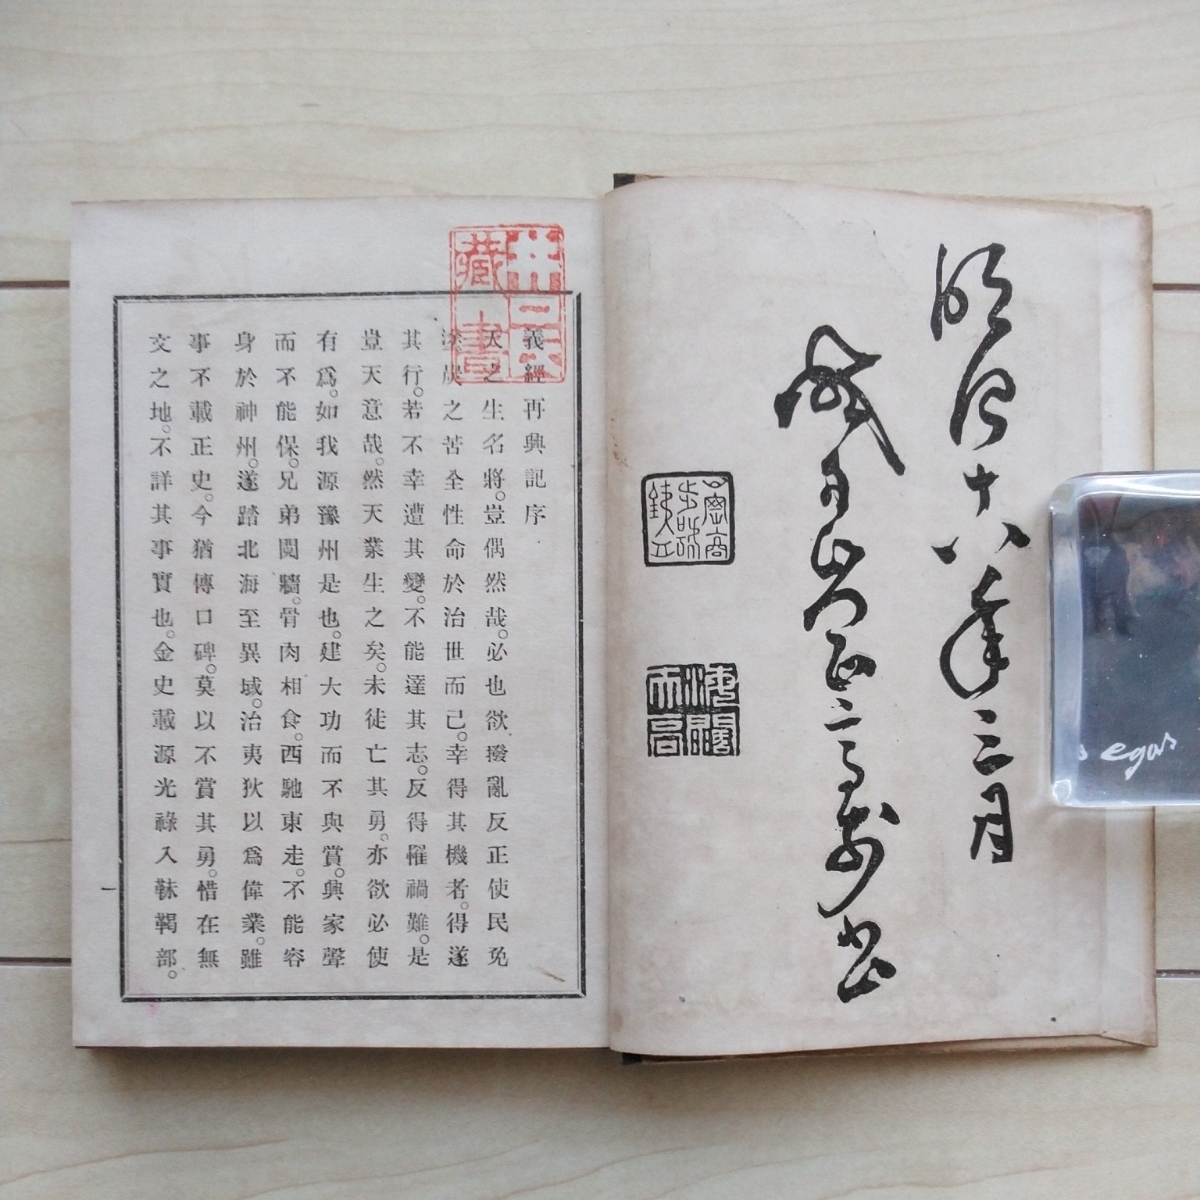 明治十八年三月
義經再興記序
天之生名將。豈偶然哉。必也欲撥亂反正使民免
塗炭之苦全性命於治世而已。幸得其機者。得遂
其行。若不幸遭其變。不能達其志。反得罹禍難。是
豈天意哉。然天業生之矣。未徒亡其勇。亦欲必使
有爲。如我源豫州是也。建大功而不與賞。興家聲
而不能保。兄弟鬩牆。骨肉相食。西馳東走。不能容
身於神州。遂踏北海至異域。治夷狄以爲偉業。雖
事不載正史。今猶傳口碑。莫以不賞其勇。惜在無
文之地。不詳其事實也。金史載源光祿入靺鞨部。
一
藏書
egas